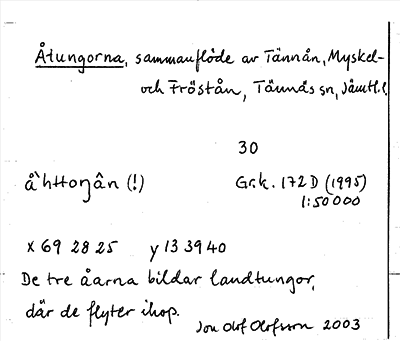 Åtungorna, sammanflöde av Tännån, Myskel-
och Fröstån, Tännäs sn, Jämtl. l.
30
å`httoŋân (!)
Gr.k. 172 D (1995)
1:50 000
x 69 28 25 y 13 39 40
De tre åarna bildar landtungor,
där de flyter ihop.
Jon Olof Olofsson 2003